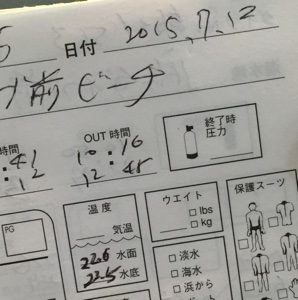 5 日付 2015.7.12
前ビーチ
時間 OUT時間 終了時
圧力
:41 10:16
:12 12:45
温度 ウエイト 保護スーツ
気温 □ lbs
□ kg
PG
22.6 水面 □ 淡水
22.5 水底 □ 海水
□ 浜から